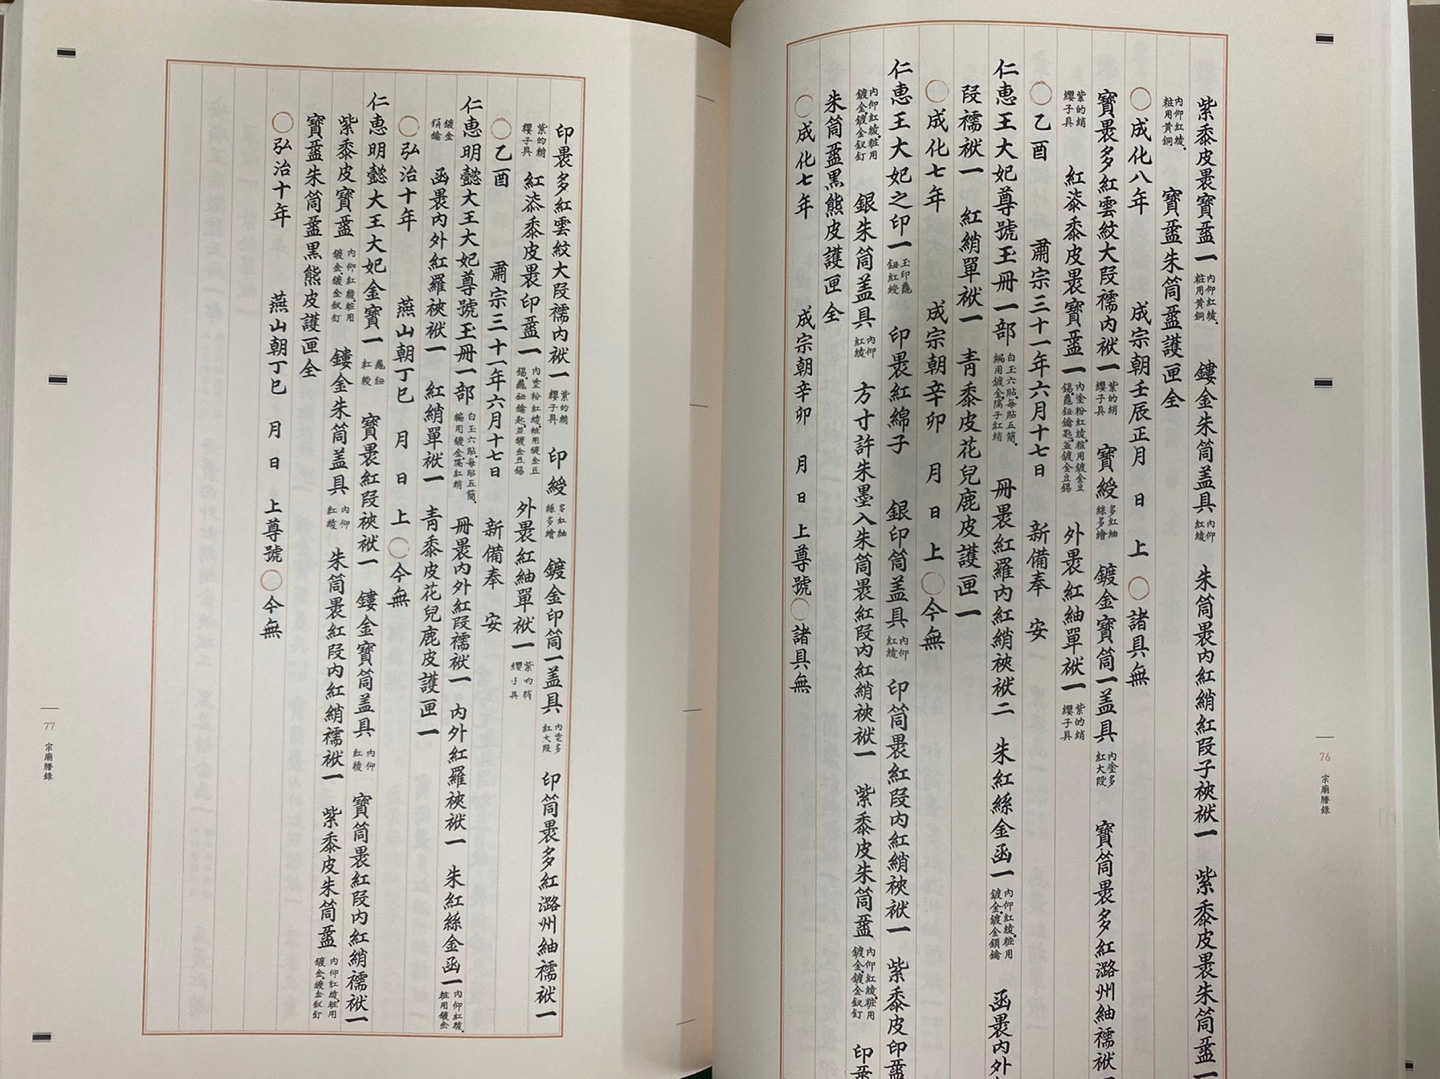 紫黍皮裹寶盝一 內仰紅綾粧用黃銅 鏤金朱筒盖具 內仰紅綾 朱筒裹內紅綃紅段子袱袱一 紫黍皮裹朱筒盝一
內仰紅綾粧用黃銅 寶盝朱筒盝護匣全
○成化八年 成宗朝壬辰正月 日 上○諸具無
寶裹多紅雲紋大段襦內袱一 紫的綃纓子具 寶綬 多紅紬絲多繪 鍍金寶筒一盖具 內塗多紅大段 寶筒裹多紅潞州紬襦袱
紫的綃纓子具 紅漆黍皮裹寶盝一 內塗粉紅綾粧用鍍金豆錫龜鈕鑰匙並鍍金豆錫 外裹紅紬單袱一 紫的綃纓子具
○乙酉 肅宗三十一年六月十七日 新備奉 安
仁惠王大妃尊號玉冊一部 白玉六貼每貼五簡編用鍍金隔子紅綃 冊裹紅羅內紅綃裌袱二 朱紅絲金函一 內仰紅綾粧用鍍金鍍金鎖鑰 函裹內外
段襦袱一 紅綃單袱一 靑黍皮花兒鹿皮護匣一
○成化七年 成宗朝辛卯 月 日 上○今無
仁惠王大妃之印一 玉印龜鈕紅綬 印裹紅綿子 銀印筒盖具 內仰紅綾 印筒裹紅段內紅綃裌袱一 紫黍皮印盝
內仰紅綾粧用鍍金鍍金釵釘 銀朱筒盖具 內仰紅綾 方寸許朱墨入朱筒裹紅段內紅綃裌袱一 紫黍皮朱筒盝 內仰紅綾粧用鍍金鍍金釵釘 印
朱筒盝黑熊皮護匣全
○成化七年 成宗朝辛卯 月 日 上尊號○諸具無
76 宗廟謄錄
印裹多紅雲紋大段襦內袱一 紫的綃纓子具 印綬 多紅紬絲多繪 鍍金印筒一盖具 內塗多紅大段 印筒裹多紅潞州紬襦袱一
紫的綃纓子具 紅漆黍皮裹印盝一 內塗粉紅綾粧用鍍金豆錫龜鈕鑰匙並鍍金豆錫 外裹紅紬單袱一 紫的綃纓子具
○乙酉 肅宗三十一年六月十七日 新備奉 安
仁惠明懿大王大妃尊號玉冊一部 白玉六貼每貼五簡編用鍍金隔紅綃 冊裹內外紅段襦袱一 內外紅羅裌袱一 朱紅絲金函一 內仰紅綾粧用鍍金
鍍金鎖鑰 函裹內外紅羅裌袱一 紅綃單袱一 靑黍皮花兒鹿皮護匣一
○弘治十年 燕山朝丁巳 月 日 上○今無
仁惠明懿大王大妃金寶一 龜鈕紅綬 寶裹紅段裌袱一 鏤金寶筒盖具 內仰紅綾 寶筒裹紅段內紅綃襦袱一
紫黍皮寶盝 內仰紅綾粧用鍍金鍍金釵釘 鏤金朱筒盖具 內仰紅綾 朱筒裹紅段內紅綃襦袱一 紫黍皮朱筒盝 內仰紅綾粧用鍍金鍍金釵釘
寶盝朱筒盝黑熊皮護匣全
○弘治十年 燕山朝丁巳 月 日 上尊號○今無
77 宗廟謄錄